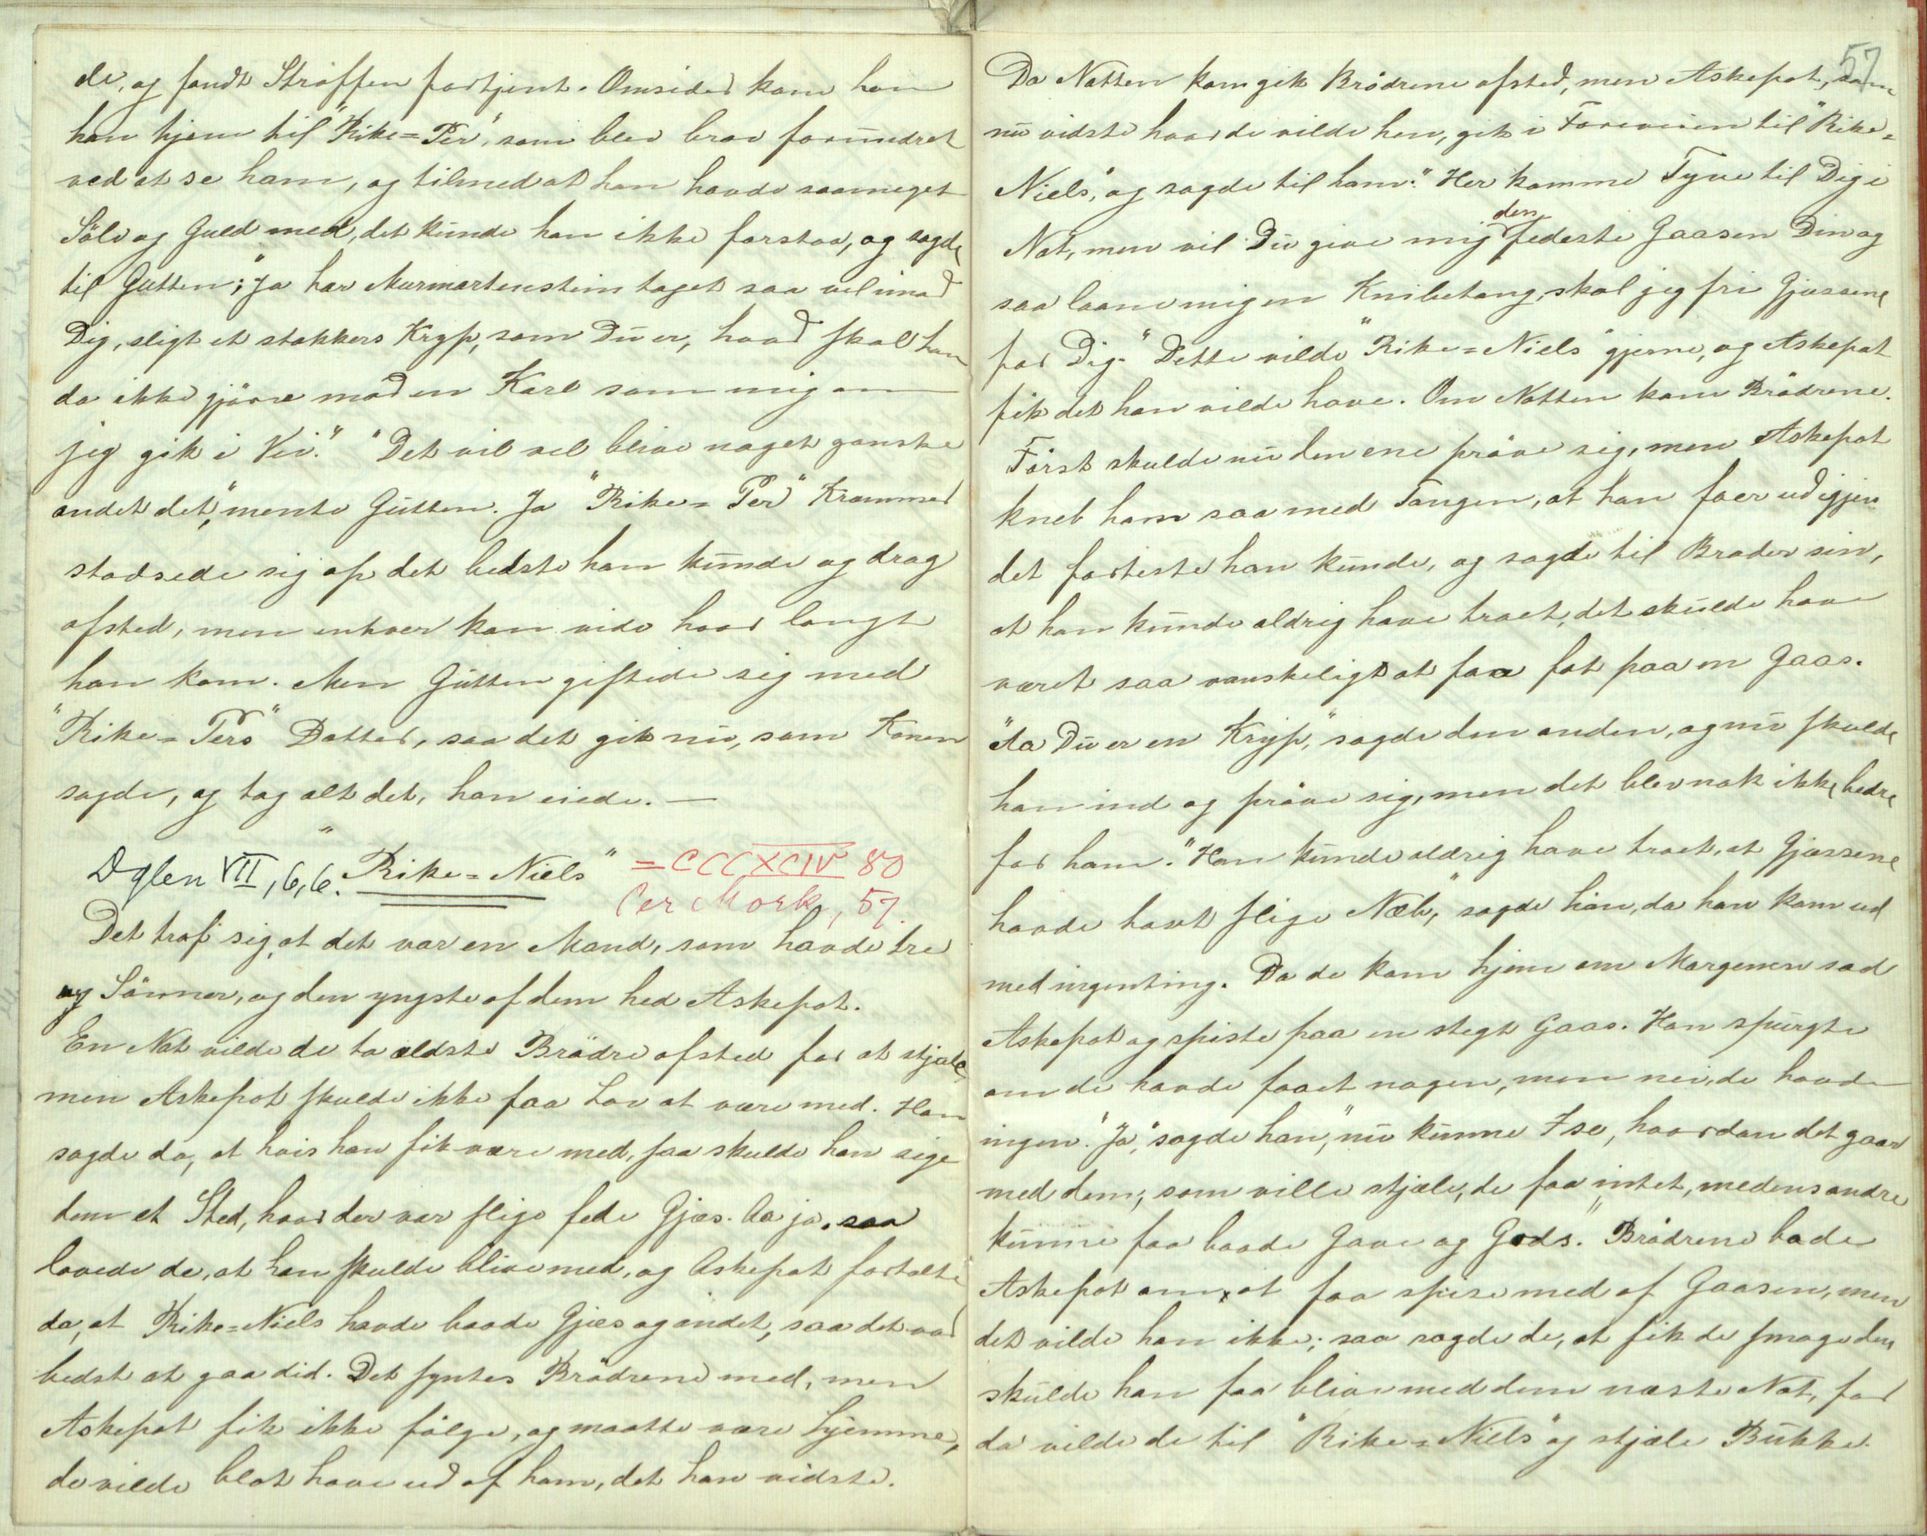 de, og fandt Straffen fortjent. Omsider kom han
han hjem til "Rike=Per", som blev brav forundret
ved at se ham, og tilmed at han havde saameget
Sölv og Guld med, det kunde han ikke forstaa, og sagde
til Gutten; "Ja har Murmurtenstein taget saa vel imod
Dig, sligt et stakkers Kryp, som Du er, hvad skal han
da ikke gjöre mod en Karl som mig om
jeg gik i Vei." "Det vil vel blive noget ganske
andet det," mente Gutten. Ja "Rike=Per" Krammed
stadsede sig op det bedste han kunde og drog
afsted, men enhver kan vide hvor langt
han kom. Men Gutten giftede sig med
"Rike=Pers" Datter, saa det gik nu, som Konen
sagde, og tog alt det, han eiede. —
Dglen VII, 6, 6. "Rike=Niels" = CCCXCIV 80
Per Mork, 57.
Det traf sig, at det var en Mand, som havde tre
Sönner, og den yngste af dem hed Askepot.
En Nat vilde de to ældste Brödre afsted for at stjæle,
men Askepot skulde ikke faa Lov at være med. Han
sagde da, at hvis han fik være med, saa skulde han sige
dem et Sted, hvor der var slige fede Gjæs. Aa ja, saa
lovede de, at han skulde blive med, og Askepot fortalte
da, at Rike=Niels havde baade Gjæs og andet, saa det var
bedst at gaa did. Det syntes Brödrene med, men
Askepot fik ikke fölge, og maatte være hjemme,
de vilde blot have ud af ham, det han vidste.
57
Da Natten kom gik Brödrene afsted, men Askepot, som
nu vidste hvor de vilde hen, gik i Forveien til "Rike=
Niels," og sagde til ham: "Her komme Tyve til Dig i
Nat, men vil Du give mig den fedeste Gaasen Din og
saa laane mig en Knibetang, skal jeg fri Gjæssene
for Dig." Dette vilde "Rike=Niels" gjerne, og Askepot
fik det han vilde have. Om Natten kom Brödrene.
Först skulde nu den ene pröve sig, men Askepot
kneb ham saa med Tangen, at han foer ud igjen
det forteste han kunde, og sagde til Broder sin,
at han kunde aldrig have troet, det skulde have
været saa vanskeligt at faa fat paa en Gaas.
"Aa Du er en Kryp," sagde den anden, og nu skulde
han ind og pröve sig, men det blev nok ikke bedre
for ham. "Han kunde aldrig have troet, at Gjæssene
havde havt slige Næb," sagde han, da han kom ud
med ingenting. Da de kom hjem om Morgenen sad
Askepot og spiste paa en stegt Gaas. Han spurgte
om de havde faaet nogen, men nei, de havde
ingen. "Ja," sagde han, "nu kunne I se, hvordan det gaar
med dem, som ville stjæle, de faa intet, medens andre
kunne faa baade Gave og Gods." Brödrene bade
Askepot om at faa spise med af Gaasen, men
det vilde han ikke; saa sagde de, at fik de smage den
skulde han faa blive med dem næste Nat, for
da vilde de til "Rike=Niels" og stjæle Bukke.